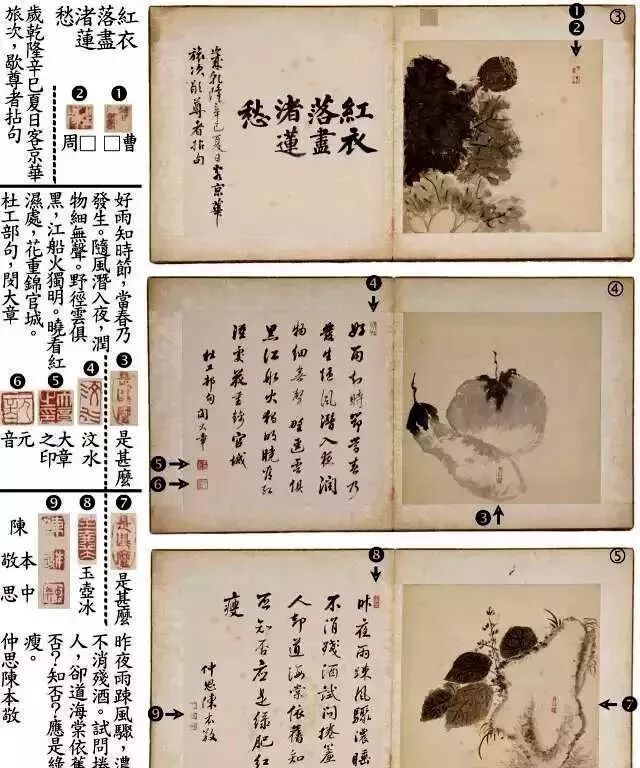 紅衣
落盡
渚蓮
愁
歲乾隆辛巳夏日客京華
旅次，歇尊者拈句
❶
曹
❷
周
好雨知時節，當春乃
發生。隨風潛入夜，潤
物細無聲。野徑雲俱
黑，江船火獨明。曉看紅
濕處，花重錦官城。
杜工部句，閔大章
❸
是甚麼
❹
汶水
❺
大章
之印
❻
元
音
❼
是甚麼
❽
玉壺冰
❾
陳本中
敬思
昨夜雨疎風驟，濃
不消殘酒。試問捲
人，卻道海棠依舊
否？知否？應是綠
瘦。
仲思陳本敬
③
❶
❷
紅衣
落盡
渚蓮
愁
歲乾隆辛巳夏日客京華
旅次歇尊者拈句
④
❹
❸
好雨知時節當春乃
發生隨風潛入夜潤
物細無聲野徑雲俱
黑江船火獨明曉看紅
濕處花重錦官城
杜工部句閔大章
❺
❻
⑤
❽
❼
昨夜雨疎風驟濃睡
不消殘酒試問捲簾
人卻道海棠依舊知
否知否應是綠肥紅
瘦
仲思陳本敬
❾